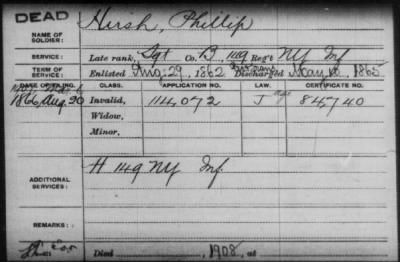 DEAD
NAME OF SOLDIER: Hirsh, Phillip
SERVICE: Late rank, Sgt Co. B, 149 Reg't NY Inf
TERM OF SERVICE: Enlisted Aug. 29, 1862 Discharged May 10, 1865
DATE OF FILING. CLASS. APPLICATION NO. LAW. CERTIFICATE NO.
1866, Aug. 20 Invalid, 114,072 J 84740
Widow,
Minor,
ADDITIONAL SERVICES: H 149 NY Inf
REMARKS:
Died 1908, at